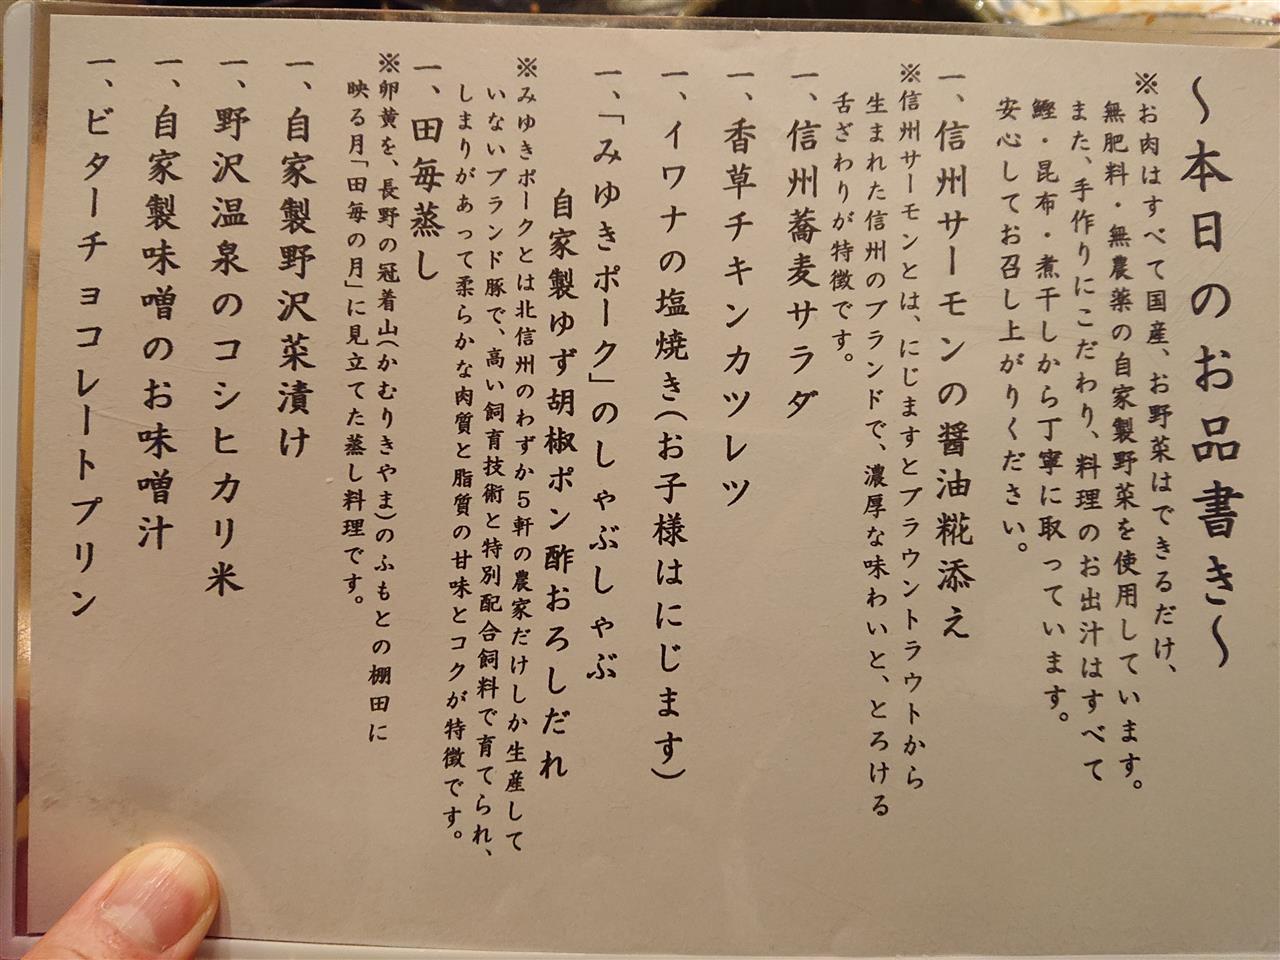 ～本日のお品書き～
※お肉はすべて国産、お野菜はできるだけ、
無肥料・無農薬の自家製野菜を使用しています。
また、手作りにこだわり、料理のお出汁はすべて
鰹・昆布・煮干しから丁寧に取っています。
安心してお召し上がりください。
一、信州サーモンの醤油糀添え
※信州サーモンとは、にじますとブラウントラウトから
生まれた信州のブランドで、濃厚な味わいと、とろける
舌ざわりが特徴です。
一、信州蕎麦サラダ
一、香草チキンカツレツ
一、イワナの塩焼き(お子様はにじます)
一、「みゆきポーク」のしゃぶしゃぶ
自家製ゆず胡椒ポン酢おろしだれ
※みゆきポークとは北信州のわずか5軒の農家だけしか生産して
いないブランド豚で、高い飼育技術と特別配合飼料で育てられ、
しまりがあって柔らかな肉質と脂質の甘味とコクが特徴です。
一、田毎蒸し
※卵黄を、長野の冠着山(かむりきやま)のふもとの棚田に
映る月「田毎の月」に見立てた蒸し料理です。
一、自家製野沢菜漬け
一、野沢温泉のコシヒカリ米
一、自家製味噌のお味噌汁
一、ビターチョコレートプリン